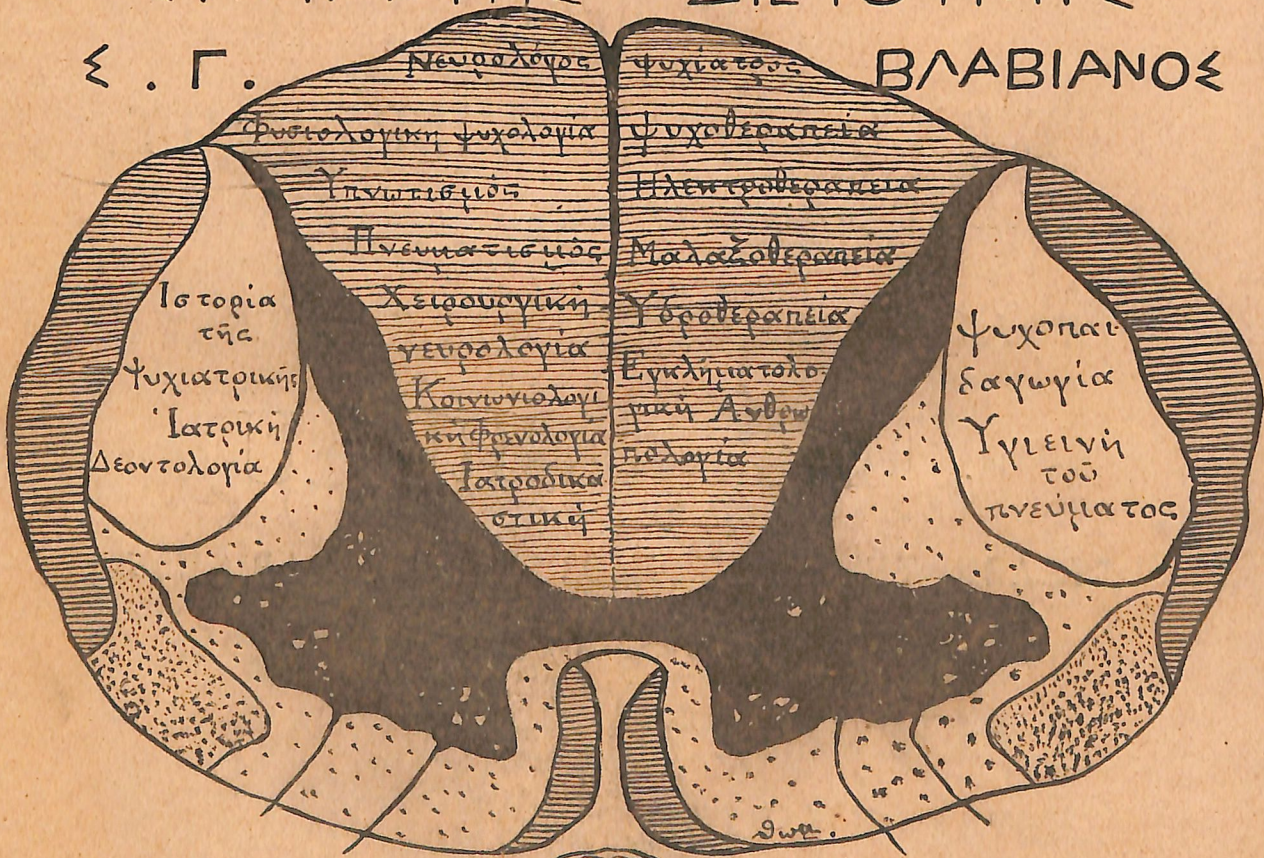 Σ. Γ. ΒΛΑΒΙΑΝΟΣ
Νευρολόγος
Φυσιολογικη ψυχολογία
Υπνωτισμός
Πνευματισμός
Χειρουργική
νευρολογία
Κοινωνιολογι
κή Φρενολογία
Ιατροδικα
στική
Ψυχίατρος
Ψυχοθεραπεία
Ηλεκτροθεραπεία
Μαλαξοθεραπεία
Υδροθεραπεία
Εγκληματολο
γική Ανθρω
πολογία
Ιστορία
τῆς
Ψυχιατρικῆς
Ἰατρική
Δεοντολογία
Ψυχοπαι
δαγωγία
Υγιεινή
τοῦ
πνεύματος